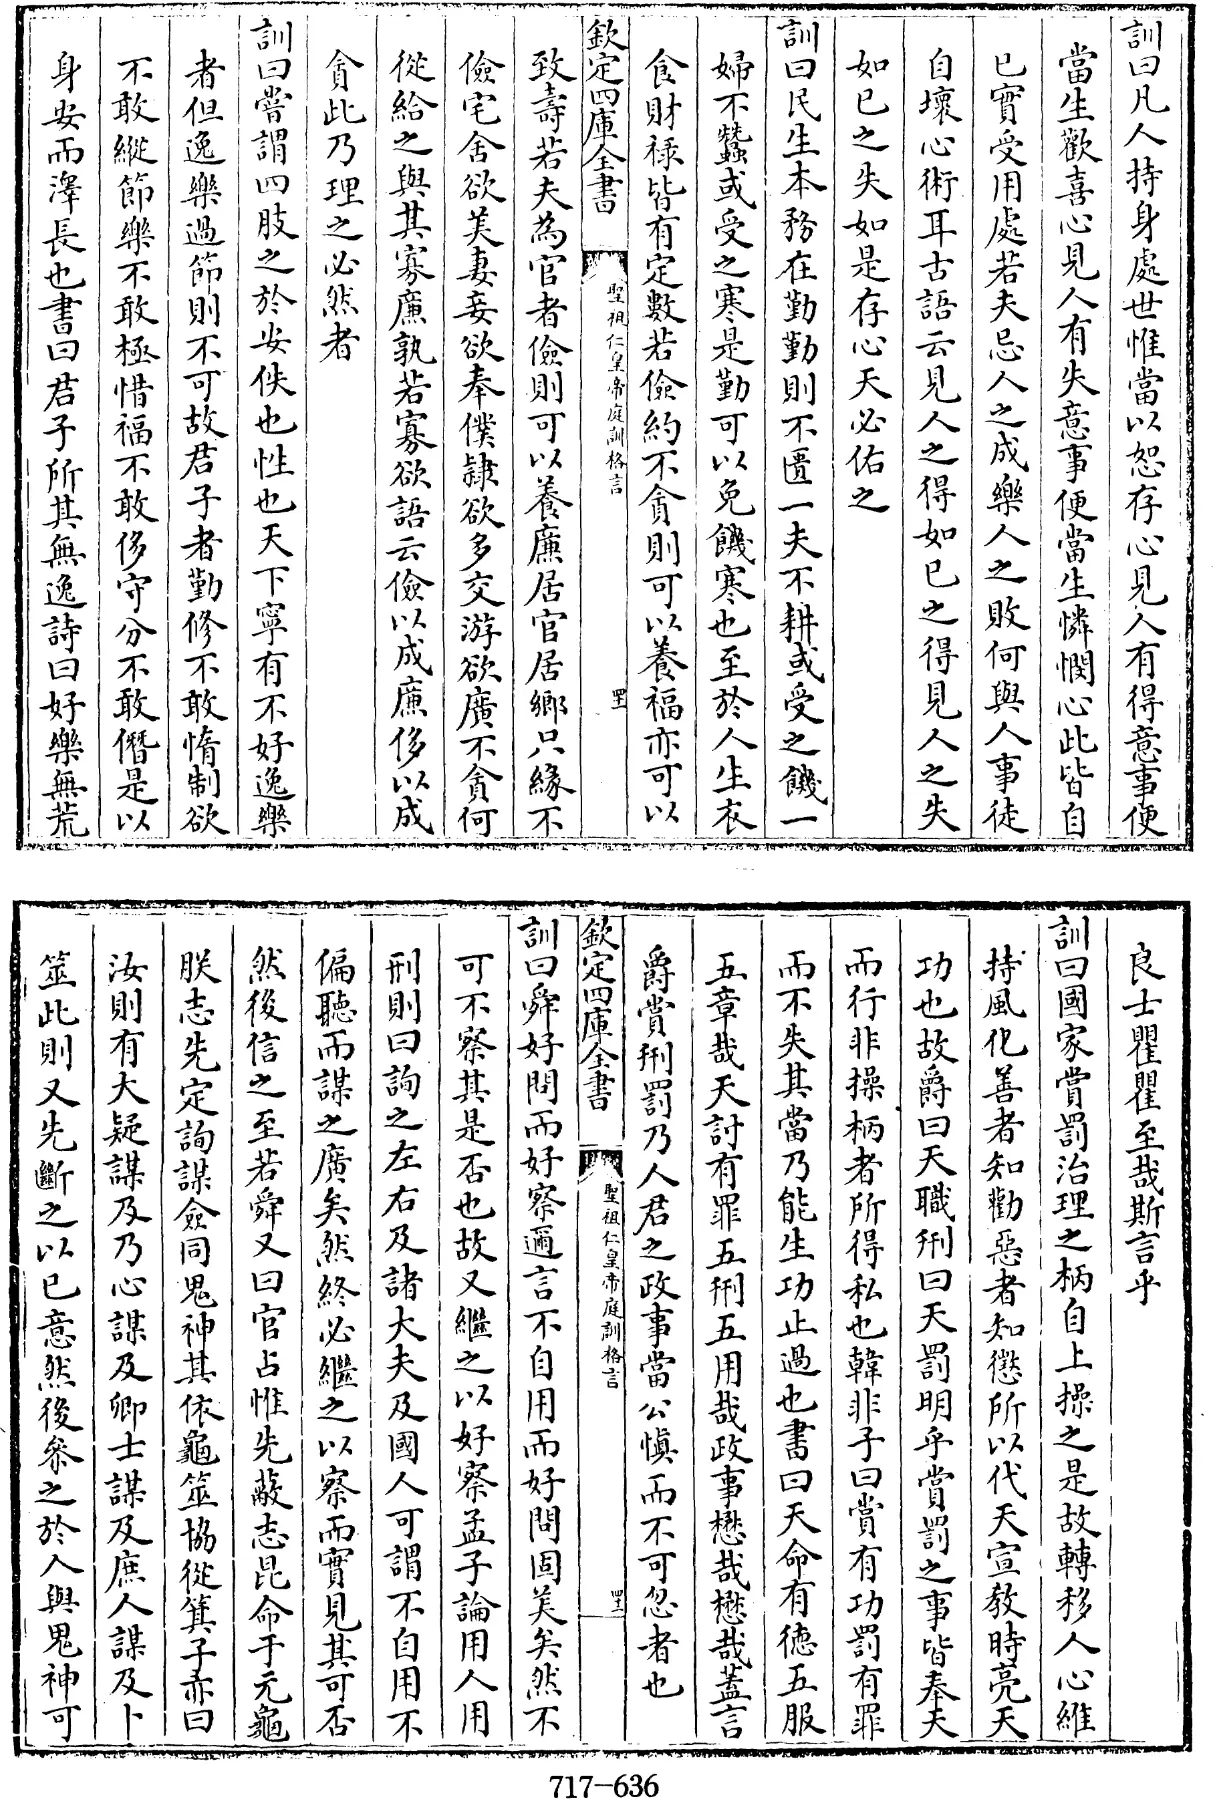 訓曰凡人持身處世惟當以恕存心見人有得意事便
當生歡喜心見人有失意事便當生憐憫心此皆自
已實受用處若夫忌人之成樂人之敗何與人事徒
自壞心術耳古語云見人之得如已之得見人之失
如已之失如是存心天必佑之
訓曰民生本務在勤勤則不匱一夫不耕或受之饑一
婦不蠶或受之寒是勤可以免饑寒也至於人生衣
食財祿皆有定數若儉約不貪則可以養福亦可以
欽定四庫全書
聖祖仁皇帝庭訓格言
四十一
致壽若夫為官者儉則可以養廉居官居鄉只緣不
儉宅舍欲美妻妾欲奉僕隸欲多交游欲廣不貪何
從給之與其寡廉孰若寡欲語云儉以成廉侈以成
貪此乃理之必然者
訓曰嘗謂四肢之於安佚也性也天下寧有不好逸樂
者但逸樂過節則不可故君子者勤修不敢惰制欲
不敢縱節樂不敢極惜福不敢侈守分不敢僭是以
身安而澤長也書曰君子所其無逸詩曰好樂無荒
良士瞿瞿至哉斯言乎
訓曰國家賞罰治理之柄自上操之是故轉移人心維
持風化善者知勸惡者知懲所以代天宣教時亮天
功也故爵曰天職刑曰天罰明乎賞罰之事皆奉天
而行非操柄者所得私也韓非子曰賞有功罰有罪
而不失其當乃能生功止過也書曰天命有德五服
五章哉天討有罪五刑五用哉政事懋哉懋哉蓋言
爵賞刑罰乃人君之政事當公慎而不可忽者也
欽定四庫全書
聖祖仁皇帝庭訓格言
四十二
訓曰舜好問而好察邇言不自用而好問固美矣然不
可不察其是否也故又繼之以好察孟子論用人用
刑則曰詢之左右及諸大夫及國人可謂不自用不
偏聽而謀之廣矣然終必繼之以察而實見其可否
然後信之至若舜又曰官占惟先蔽志昆命于元龜
朕志先定詢謀僉同鬼神其依龜筮協從箕子亦曰
汝則有大疑謀及乃心謀及卿士謀及庶人謀及卜
筮此則又先斷之以已意然後參之於人與鬼神可
717-636